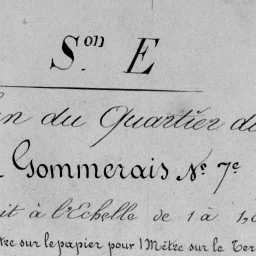 S.on E
an du Quartier d
Gommerais No 7e
it à l'Echelle de 1 à 1,
tre sur le papier pour 1 Mètre sur le Ter